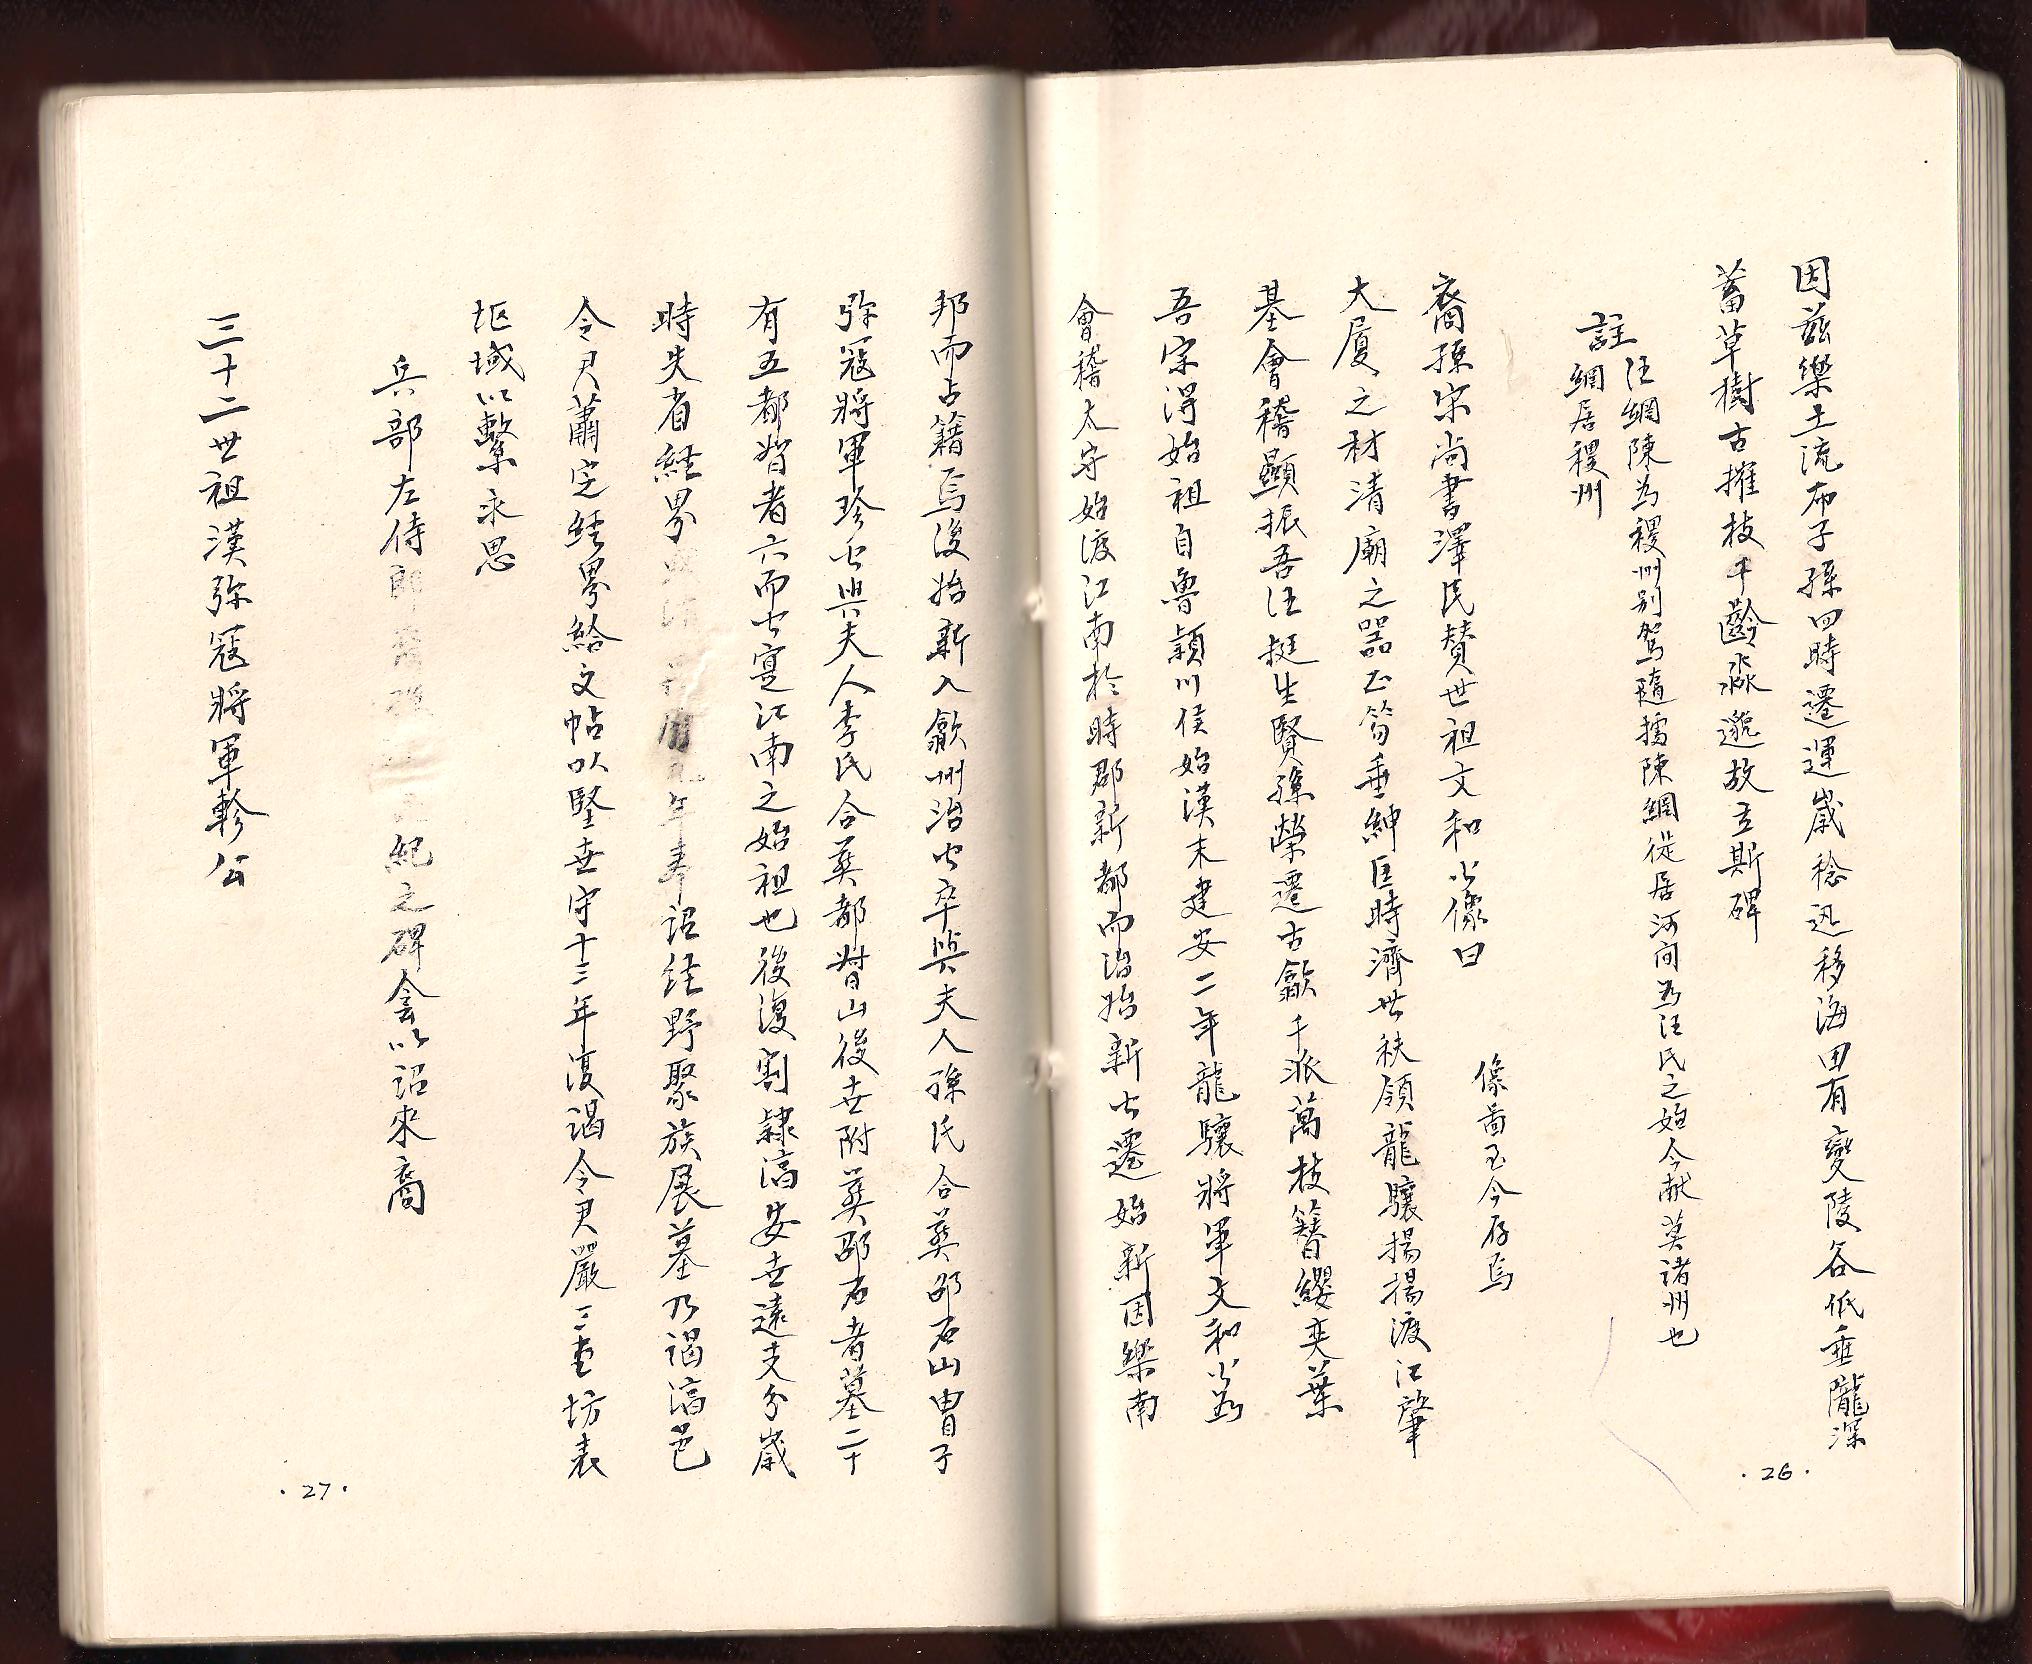 因茲樂土流布子孫四時遷運歲稔迅移海田有變陵谷低垂隴深
蓄草樹古摧枝千齡淼邈故立斯碑
註
汪綱陳為稷州別駕隨據陳綱從居河間為汪氏之始今献莫諸州也
綱居稷州
像啚至今存焉
裔孫宋尚書澤民贊世祖文和公像曰
大厦之材清廟之器正笏垂紳匡時濟世秩領龍驤揚揚渡江肇
基會稽顯振吾汪挺生賢孫榮遷古歙千派萬枝簪纓奕葉
吾宗得始祖自魯潁川侯始漢末建安二年龍驤將軍文和公為
會稽太守始渡江南於時郡新都而治始新公遷始新因樂南
·26·
邦而占籍焉後始新入歙州治公卒與夫人孫氏合葬邵石山曾子
弥寇將軍珍公與夫人李氏合葬都督山後世附葬邵石者墓二十
有五都督者六而公寔江南之始祖也後復割隸淯安世遠支分歲
時失省経界年奉詔経野聚族展墓乃謁淯邑
令尹蕭定経界給文帖以堅世守十三年復謁令尹嚴三壹坊表
坵域以繫永思
兵部左侍紀之碑会以詔來裔
三十二世祖漢弥寇將軍軫公
·27·